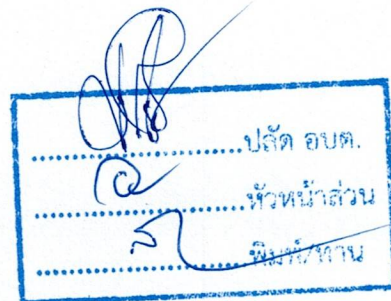 ..........................ปลัด อบต.
..........................หัวหน้าส่วน
..........................พิมพ์/ทาน